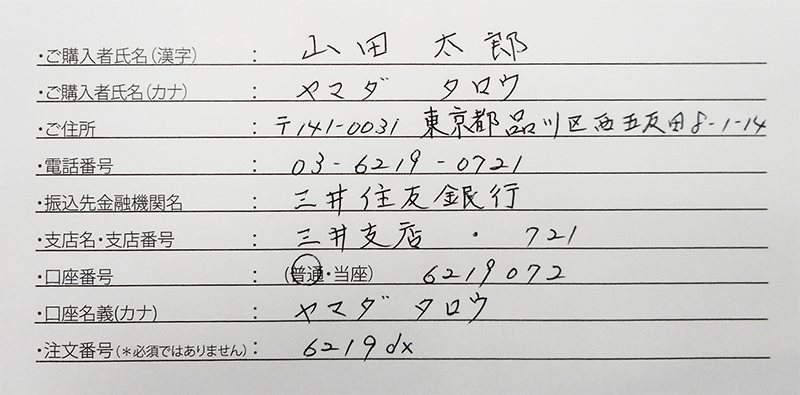 ・ご購入者氏名(漢字) : 山田 太郎
・ご購入者氏名(カナ) : ヤマダ タロウ
・ご住所 : 〒141-0031 東京都品川区西五反田8-1-14
・電話番号 : 03-6219-0721
・振込先金融機関名 : 三井住友銀行
・支店名・支店番号 : 三井支店 ・ 721
・口座番号 : (普通・当座) 6219072
・口座名義(カナ) : ヤマダ タロウ
・注文番号(*必須ではありません) : 6219dx